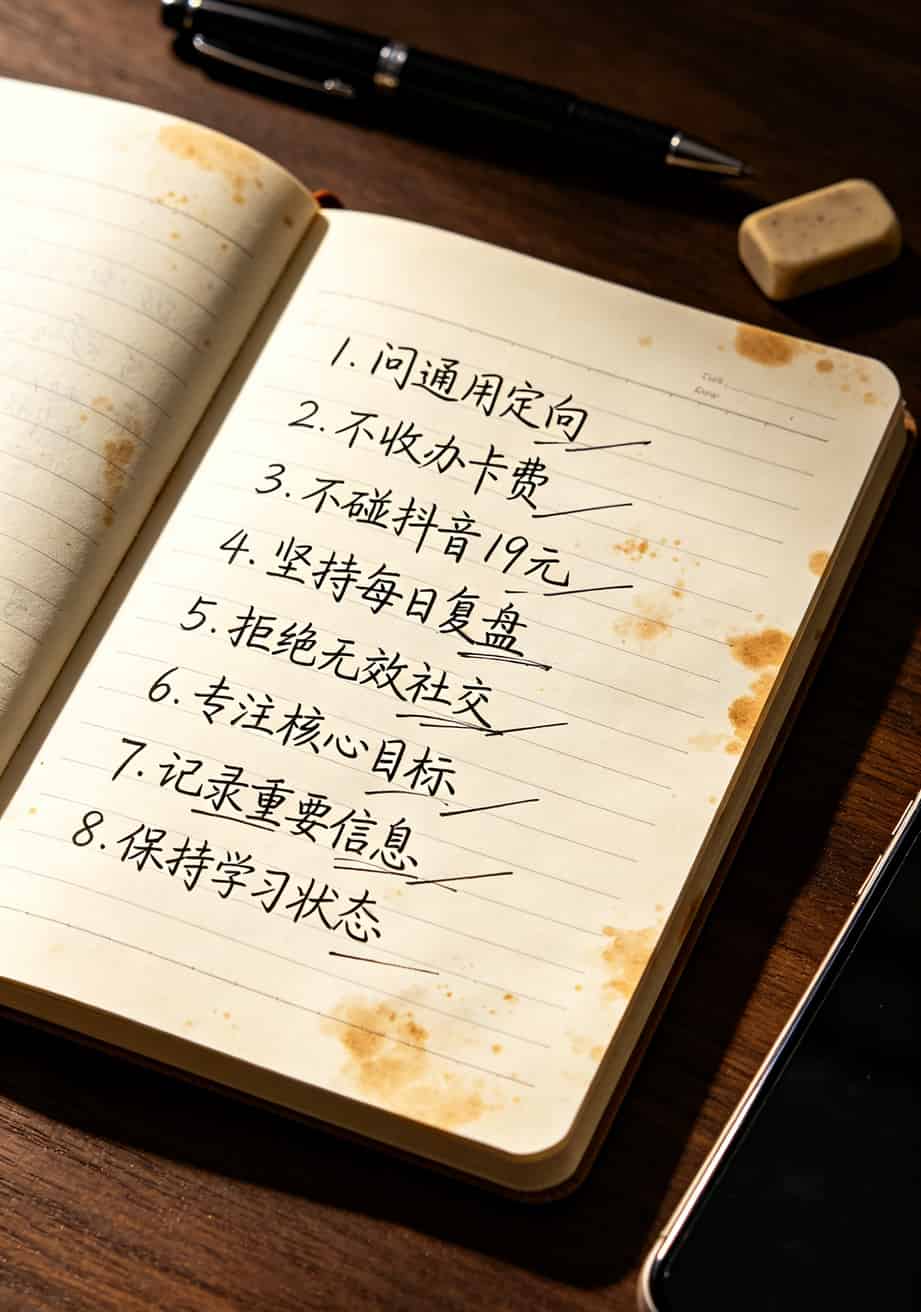 1. 问通用定向
2. 不收办卡费
3. 不碰抖音19元
4. 坚持每日复盘
5. 拒绝无效社交
6. 专注核心目标
7. 记录重要信息
8. 保持学习状态